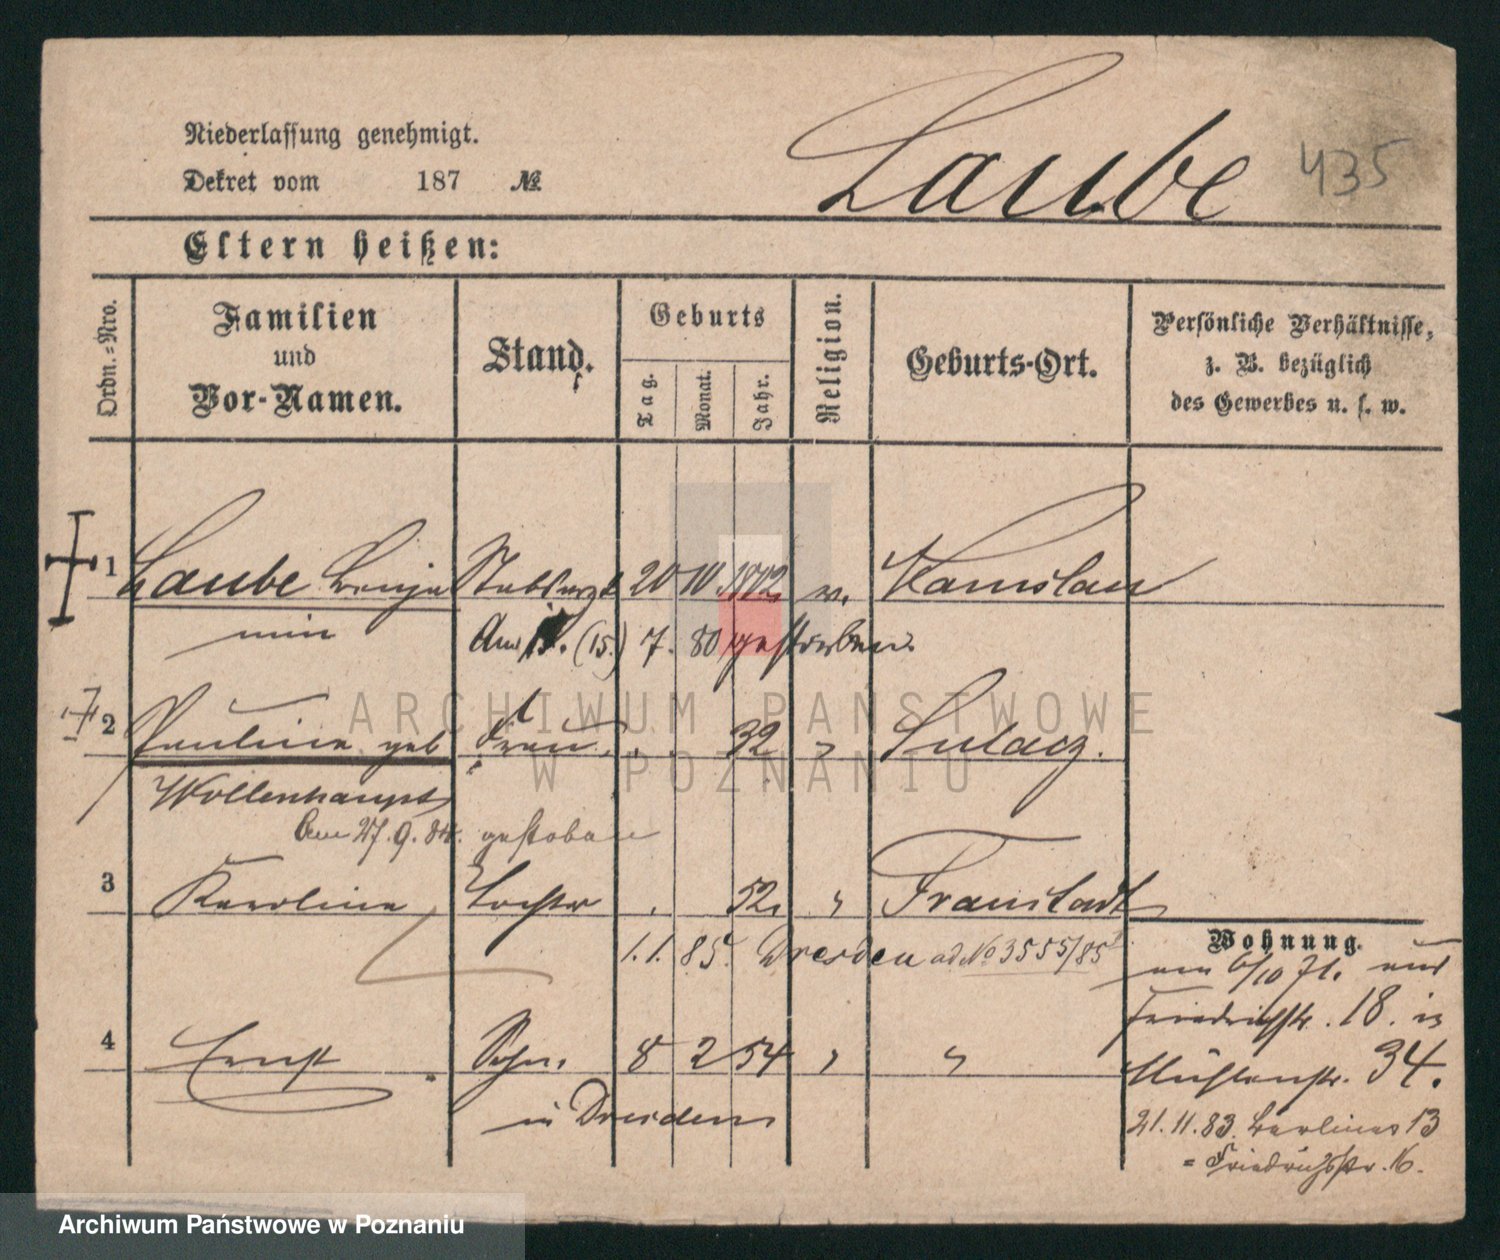 Niederlassung genehmigt.
Dekret vom 187 №
Laube
435
Eltern heißen:
Ordn.=Nro.
Familien
und
Vor-Namen.
Stand.
Geburts
Tag.
Monat.
Jahr.
Religion.
Geburts-Ort.
Persönliche Verhältnisse,
z. B. bezüglich
des Gewerbes u. s. w.
1 Laube Benja 20 10. 1802
min
(15.) 7. 80 gestorben
2 Pauline geb Frau 32 " Sulacz.
Wollenhaupt
Am 27.9.84. gestorben
3 Karoline Tochter 52. " Fraustadt
1.1.85. Dresden ad № 3555/85
4 Ernst Sohn. 8 2 54 " "
in Dresden
Wohnung.
Friedrichstr. 18. in
Mühlenstr. 34.
21.11.83. Berliner 13
= Friedrichstr. 16.
ARCHIWUM PAŃSTWOWE
W POZNANIU
Archiwum Państwowe w Poznaniu